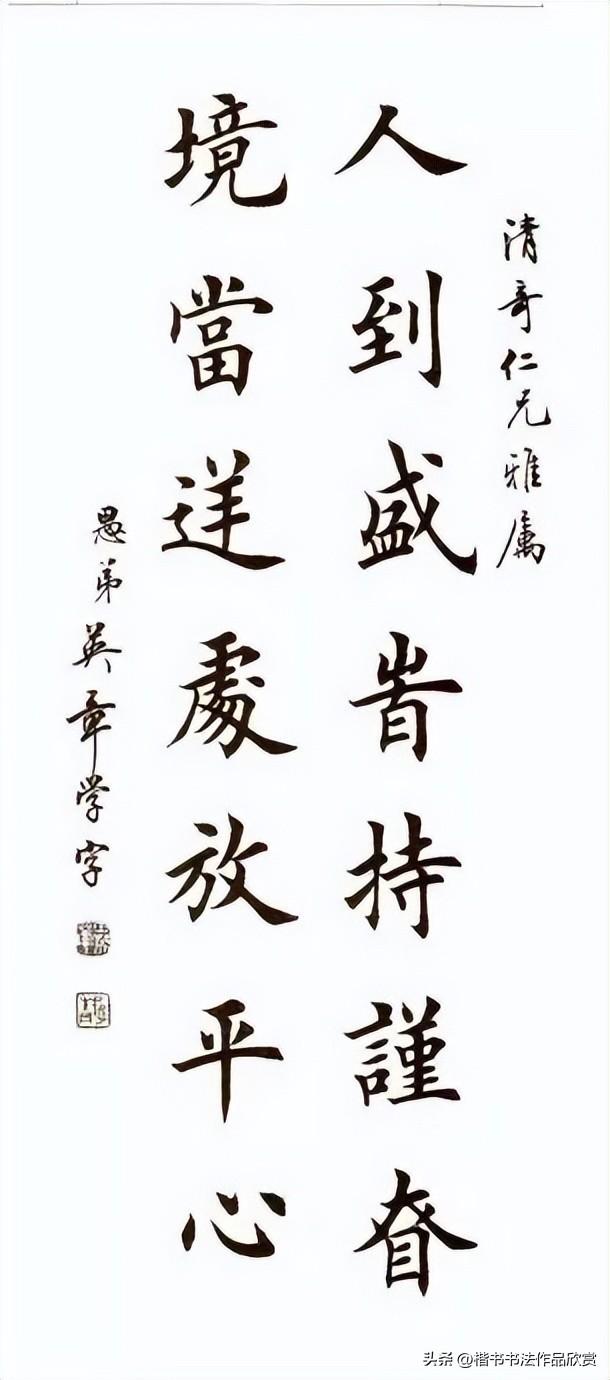 清哥仁兄雅属
人到盛旹持謹眘
境當逆處放平心
愚弟英章学字
头条 @楷书书法作品欣赏